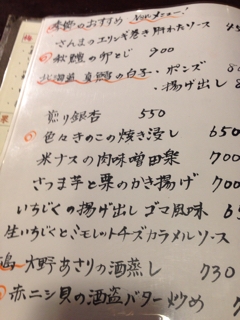 季節のおすすめ Newメニュー!
さんまのエリンギ巻き肝わたソース
秋鱧の卵とじ 900
北海道 真鱈の白子・ポン酢 8
・揚げ出し 8
煎り銀杏 550
色々きのこの焼き浸し 650
米ナスの肉味噌田楽 700
さつま芋と栗のかき揚げ 700
いちじくの揚げ出しゴマ風味 6
生いちじくとミモレットチーズカラメルソース
水野あさりの酒蒸し 730
赤ニシ貝の酒盗バター炒め 7